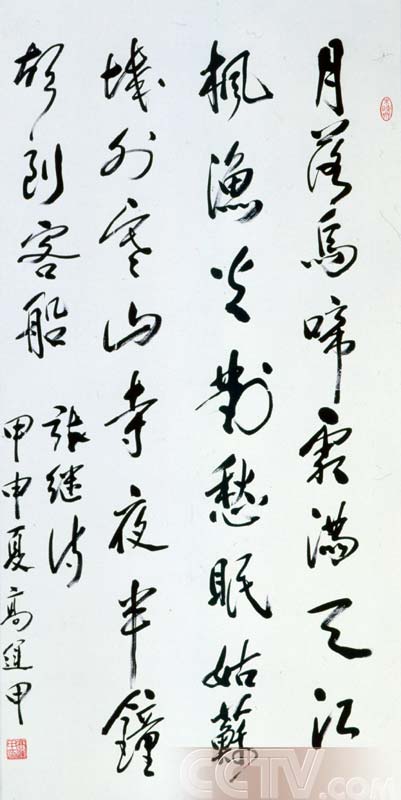 月落烏啼霜滿天江
楓漁火對愁眠姑蘇
城外寒山寺夜半鐘
聲到客船
張继诗
甲申夏高運甲
CCTV.com